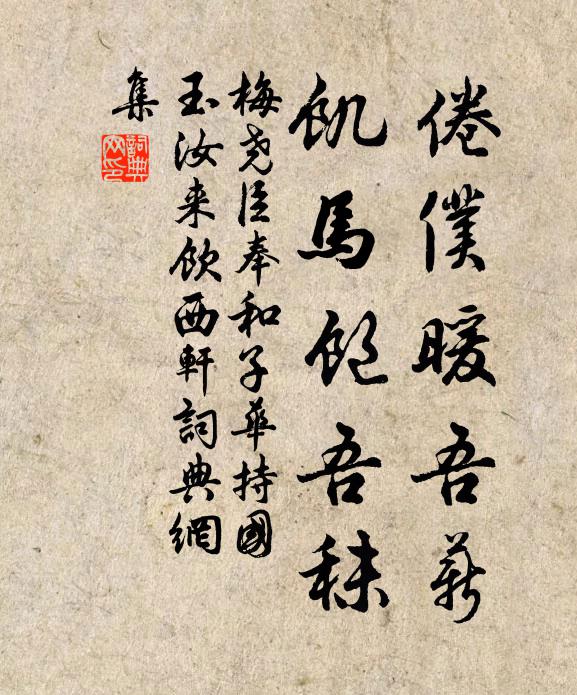 倦僕暖吾薪
飢馬飽吾秣
梅堯臣奉和子華持國
玉汝来飲西軒詞典網
集
詞典
网印